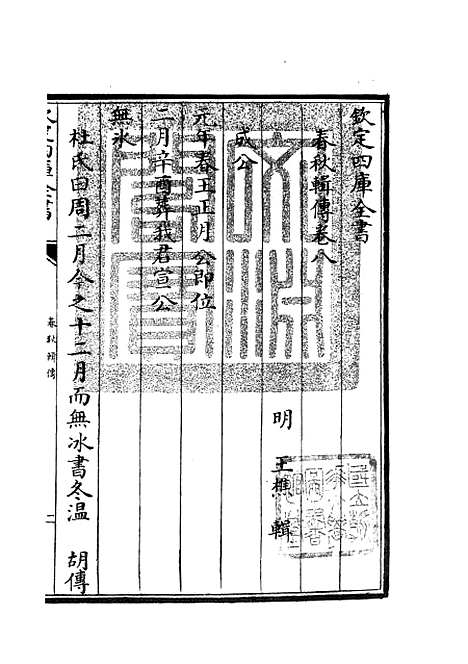 欽定四庫全書
春秋輯傳卷八
明 王樵 輯
成公
元年春王正月公即位
二月辛酉葬我君宣公
無氷
杜氏曰周二月今之十二月而無冰書冬溫 胡傳
欽定四庫全書
春秋輯傳